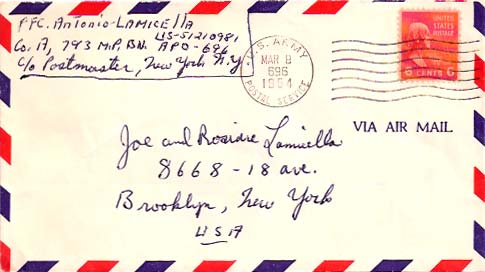 PFC. Antonio-LAMICELLA
US-51210981
Co. A, 793 M.P. BN. APO-696
c/o Postmaster, New York N.Y
U.S. ARMY
MAR 8
696
1954
POSTAL SERVICE
UNITED
STATES
POSTAGE
6 CENTS 6
VIA AIR MAIL
Joe and Lamicella
8668-18 ave.
Brooklyn, New York
USA